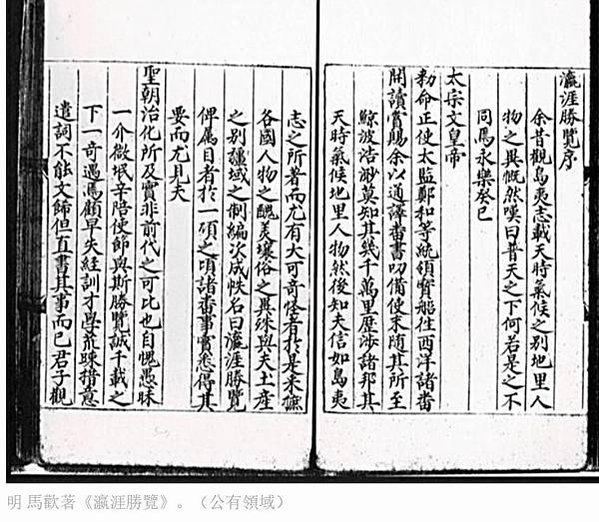 瀛涯勝覽序
余昔觀島夷志載天時氣候之别地里人
物之異慨然嘆曰普天之下何若是之不
同焉永樂癸巳
太宗文皇帝
勑命正使太監鄭和等統領寳船往西洋諸番
開讀賞賜余以通譯番書叨備使末随其所至
鯨波浩渺莫知其幾千萬里歷渉諸邦其
天時氣候地里人物然後知夫信如島夷
志之所著而尤有大可奇怪者於是采摭
各國人物之醜美壤俗之異殊與夫土産
之别疆域之制編次成帙名曰瀛涯勝覽
俾属目者於一顧之頃諸番事實悉得其
要而尤見夫
聖朝治化所及實非前代之可比也自愧愚昧
一介微氓辛陪使師與斯勝覽誠千載之
下一奇遇焉顧早失經訓才學荒踈措意
遣詞不能文飾但直書其事而已君子觀
明 馬歡著《瀛涯勝覽》。（公有領域）